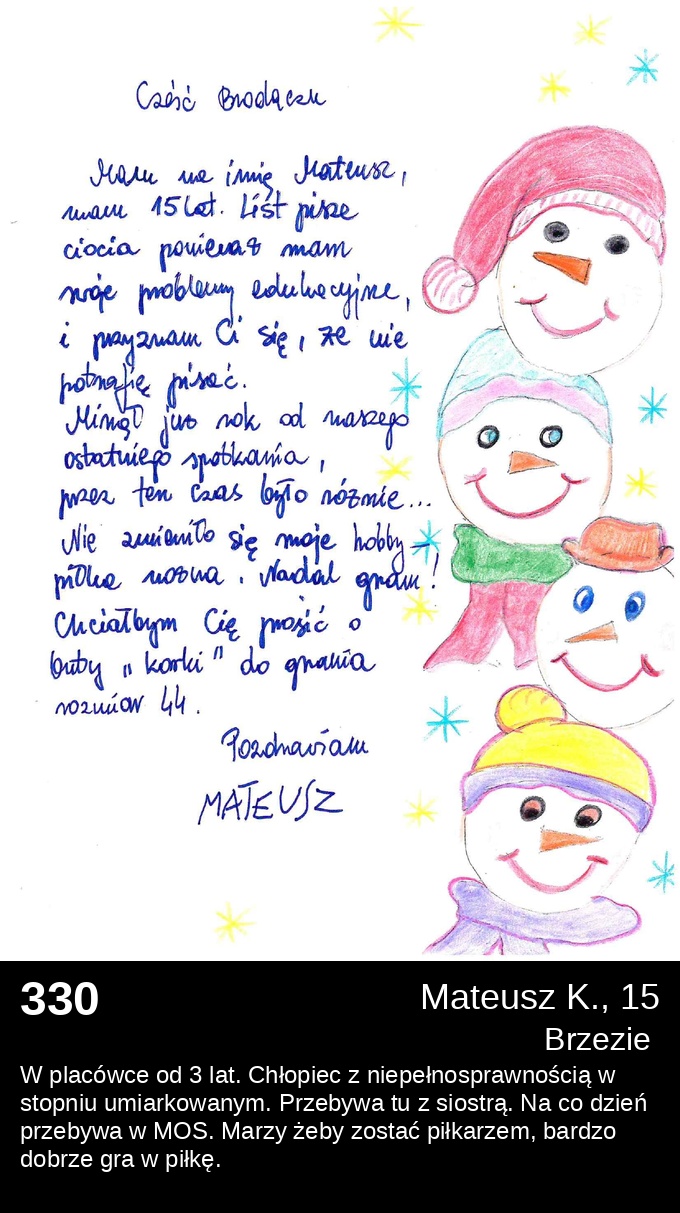 Cześć Brodaczu
Mam na imię Mateusz,
mam 15 lat. List pisze
ciocia ponieważ mam
swoje problemy edukacyjne,
i przyznam Ci się, że nie
potrafię pisać.
Minął już rok od naszego
ostatniego spotkania,
przez ten czas było różnie...
Nie zmieniło się moje hobby -
piłka nożna. Nadal gram!
Chciałbym Cię prosić o
buty "korki" do grania
rozmiar 44.
Pozdrawiam
MATEUSZ
330
Mateusz K., 15
Brzezie
W placówce od 3 lat. Chłopiec z niepełnosprawnością w
stopniu umiarkowanym. Przebywa tu z siostrą. Na co dzień
przebywa w MOS. Marzy żeby zostać piłkarzem, bardzo
dobrze gra w piłkę.